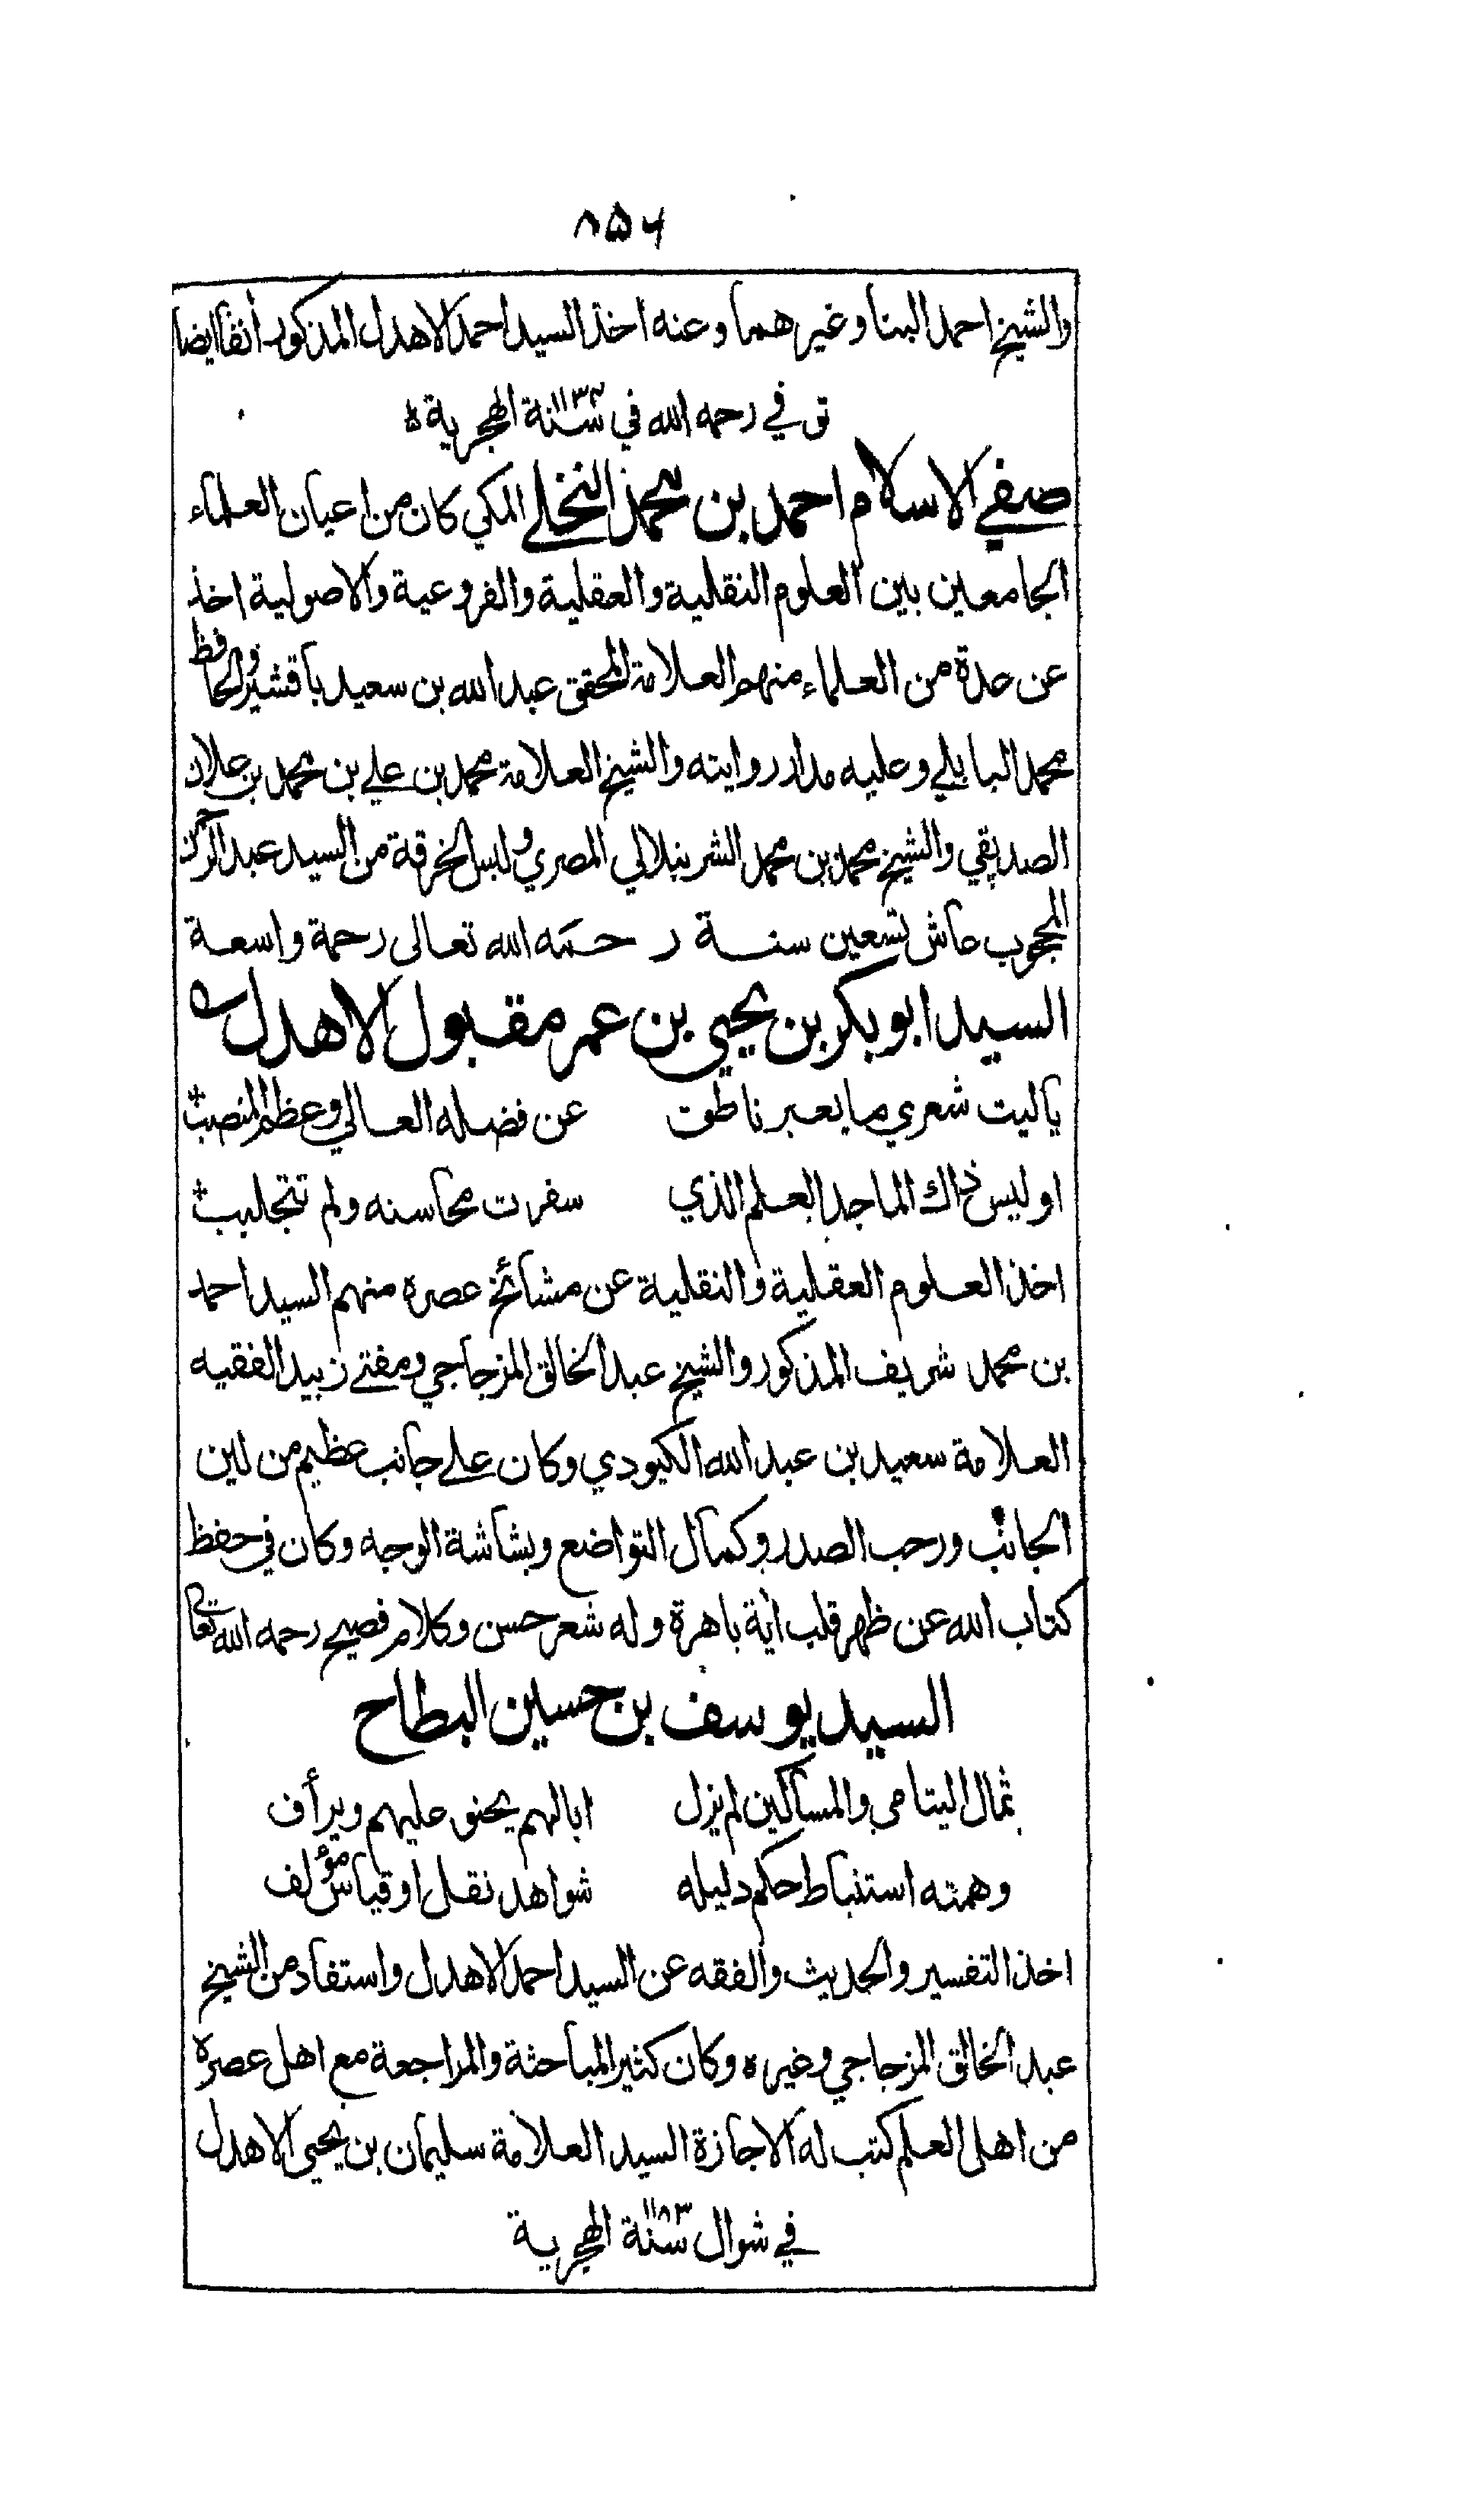 ٨٥٦
والشيخ احمد البنا وغيرهما وعنه اخذ السيد احمد الاهدل المذكور انفا ايضا
توفي رحمه الله في سنة ١١٣٤ الهجرية ه
صفي الاسلام احمد بن محمد النخلي المكي كان من اعيان العلماء
الجامعين بين العلوم النقلية والعقلية والفروعية والاصولية اخذ
عن عدة من العلماء منهم العلامة المحقق عبد الله بن سعيد باقشير والحافظ
محمد البابلي وعليه مدار روايته والشيخ العلامة محمد بن علي بن محمد بن علان
الصديقي والشيخ محمد بن محمد الشرنبلالي المصري ولبس الخرقة من السيد عبد الرحمن
المحجوب عاش تسعين سنة رحمه الله تعالى رحمة واسعة
السيد ابو بكر بن يحيى بن عمر مقبول الاهدل ه
ياليت شعري ما يعبر ناطق عن فضله العالي وعظم المنصب
اوليس ذاك الماجد العلم الذي سفرت محاسنه ولم تتجلبب
اخذ العلوم العقلية والنقلية عن مشائخ عصره منهم السيد احمد
بن محمد شريف المذكور والشيخ عبد الخالق المزجاجي ومفتي زبيد الفقيه
العلامة سعيد بن عبد الله الكبودي وكان علي جانب عظيم من لين
الجانب ورحب الصدر وكمال التواضع وبشاشة الوجه وكان في حفظ
كتاب الله عن ظهر قلب اية باهرة وله شعر حسن وكلام فصيح رحمه الله تعالى
السيد يوسف بن حسين البطاح
ثمال اليتامى والمساكين لم يزل ابا لهم يحنو عليهم ويرأف
وهمته استنباط حكم دليله شواهد نقل او قياس مؤلف
اخذ التفسير والحديث والفقه عن السيد احمد الاهدل واستفاد من الشيخ
عبد الخالق المزجاجي وغيره وكان كثير المباحثة والمراجعة مع اهل عصره
من اهل العلم كتب له الاجازة السيد العلامة سليمان بن يحيى الاهدل
في شوال سنة ١١٨٣ الهجرية